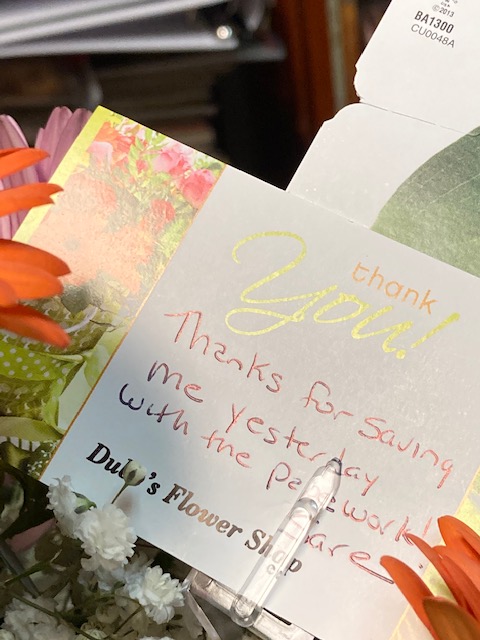 ©2013
BA1300
CU0048A
thank
You!
Thanks for Saving
me yesterday
with the paperwork!
Flower Shop